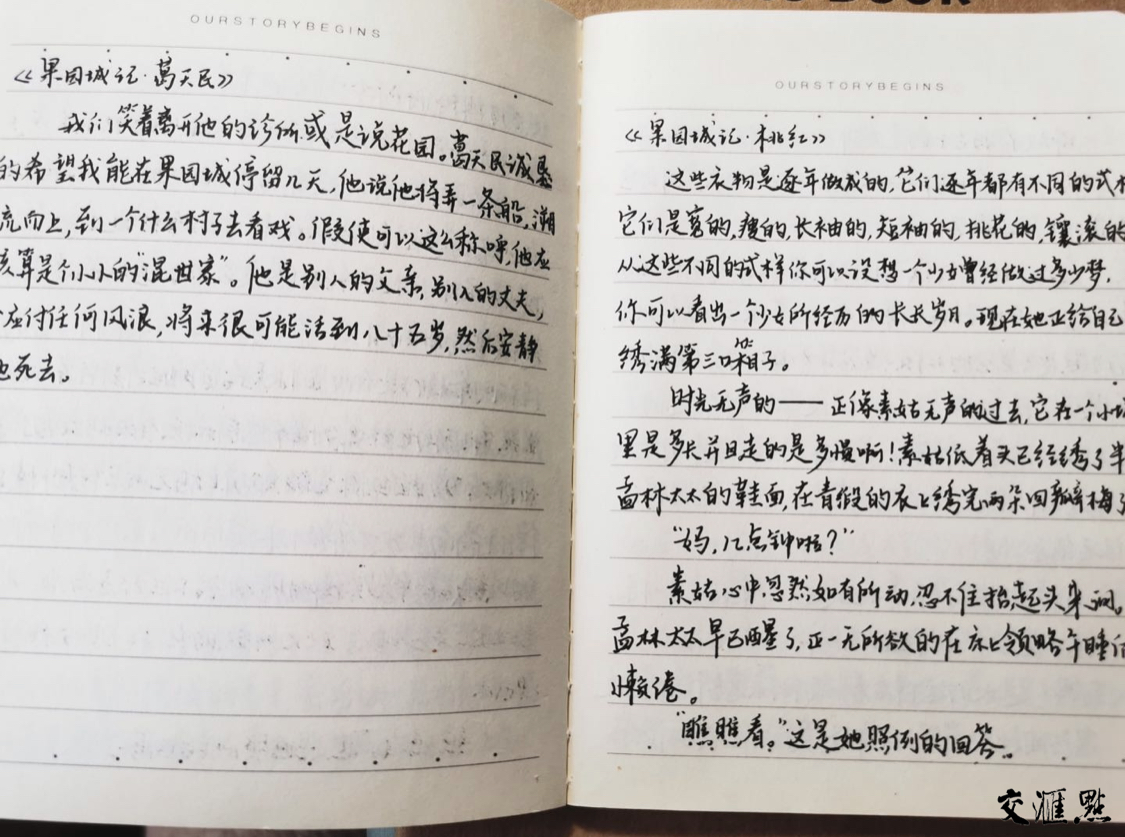 OURSTORYBEGINS
《果园城记·葛天民》
我们笑着离开他的诊所或是说花园。葛天民诚恳
的希望我能在果园城停留几天,他说他将弄一条船,溯
流而上,到一个什么村子去看戏。假使可以这么称呼,他应
该算是个小小的“混世家”。他是别人的父亲,别人的丈夫,
应付任何风浪,将来很可能活到八十五岁,然后安静
地死去。
BOOK
OURSTORYBEGINS
《果园城记·桃红》
这些衣物是逐年做成的,它们逐年都有不同的式样
它们是宽的,瘦的,长袖的,短袖的,挑花的,镶滚的
从这些不同的式样你可以设想一个少女曾经做过多少梦,
你可以看出一个少女所经历的长长岁月。现在她正给自己
绣满第三口箱子。
时光无声的——正像素姑无声的过去,它在一个小城
里是多长并且走的是多慢啊!素姑低着头已经绣了半
孟林太太的鞋面,在青缎的衣上绣完两朵四瓣梅了
“妈,几点钟啦?”
素姑心中忽然如有所动,忍不住抬起头来问。
孟林太太早已醒了,正一无所欲的在床上领略午睡的
懒倦。
“瞧瞧看。”这是她照例的回答。
交汇点